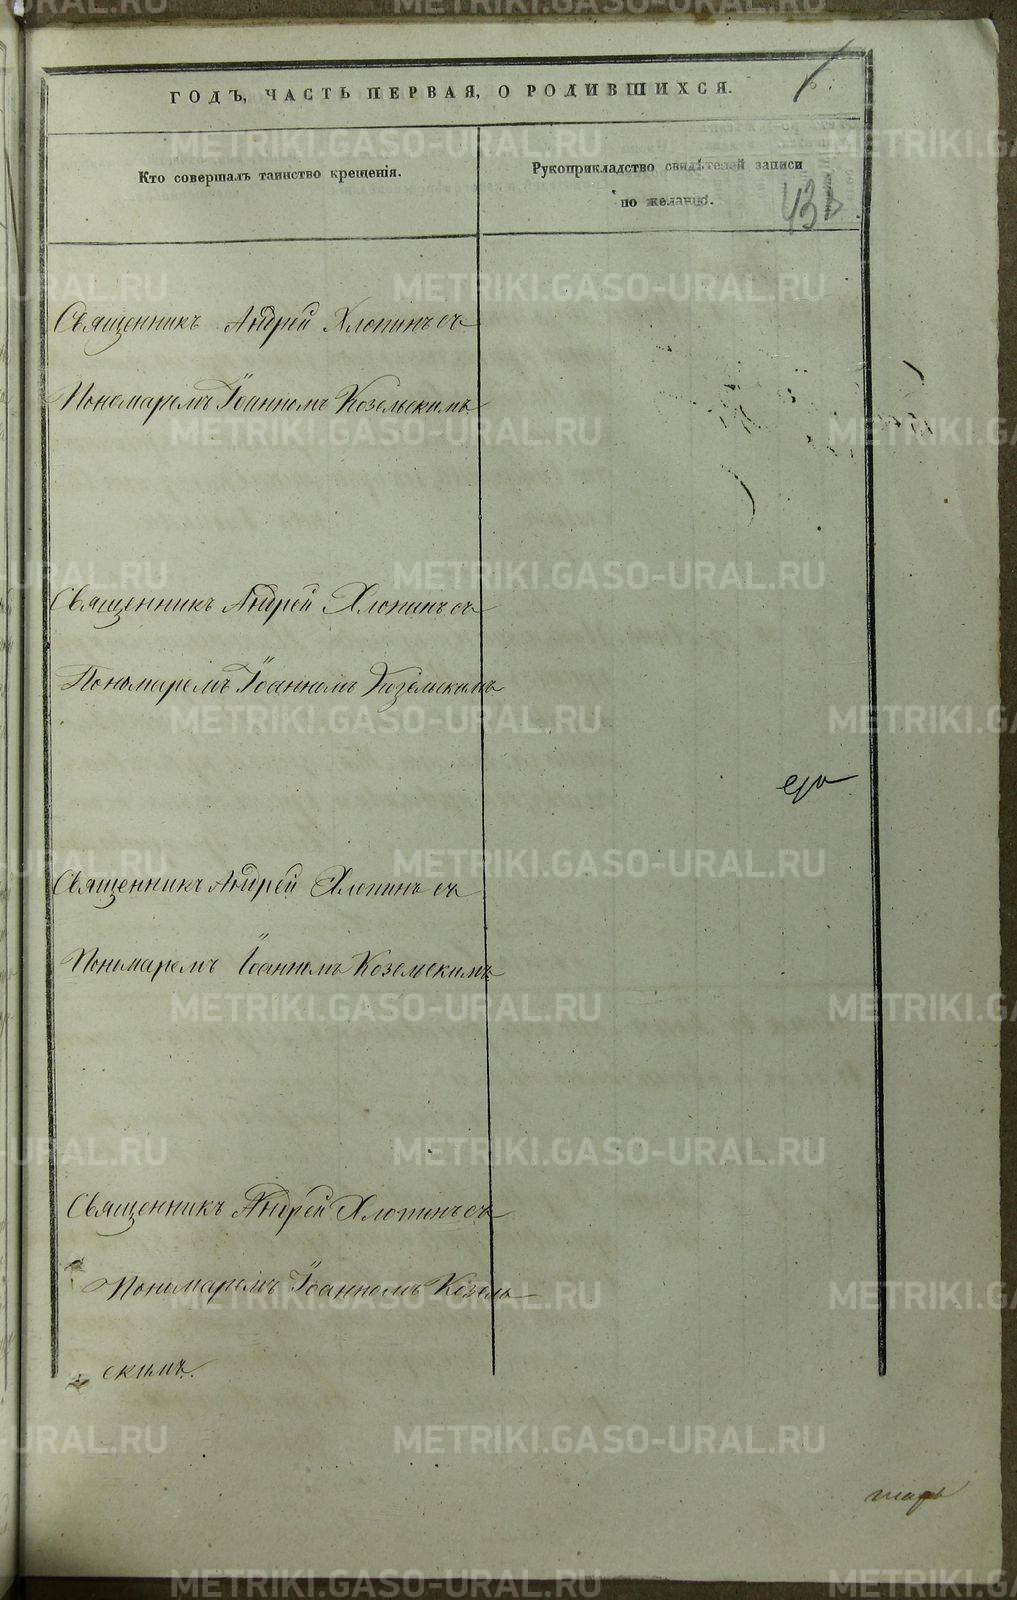 ГОДЪ, ЧАСТЬ ПЕРВАЯ, О РОДИВШИХСЯ.
Кто совершалъ таинство крещенія.
Рукоприкладство свидѣтелей записи
по желанію.
43
Священникъ Андрей Хлопинъ съ
Пономаремъ Іоанномъ Козельскимъ
Священникъ Андрей Хлопинъ съ
Пономаремъ Іоанномъ Козельскимъ
его
Священникъ Андрей Хлопинъ съ
Пономаремъ Іоанномъ Козельскимъ
Священникъ Андрей Хлопинъ съ
Пономаремъ Іоанномъ Козель
скимъ.
METRIKI.GASO-URAL.RU